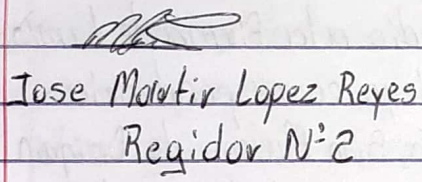 Jose Martir Lopez Reyes
Regidor Nº 2